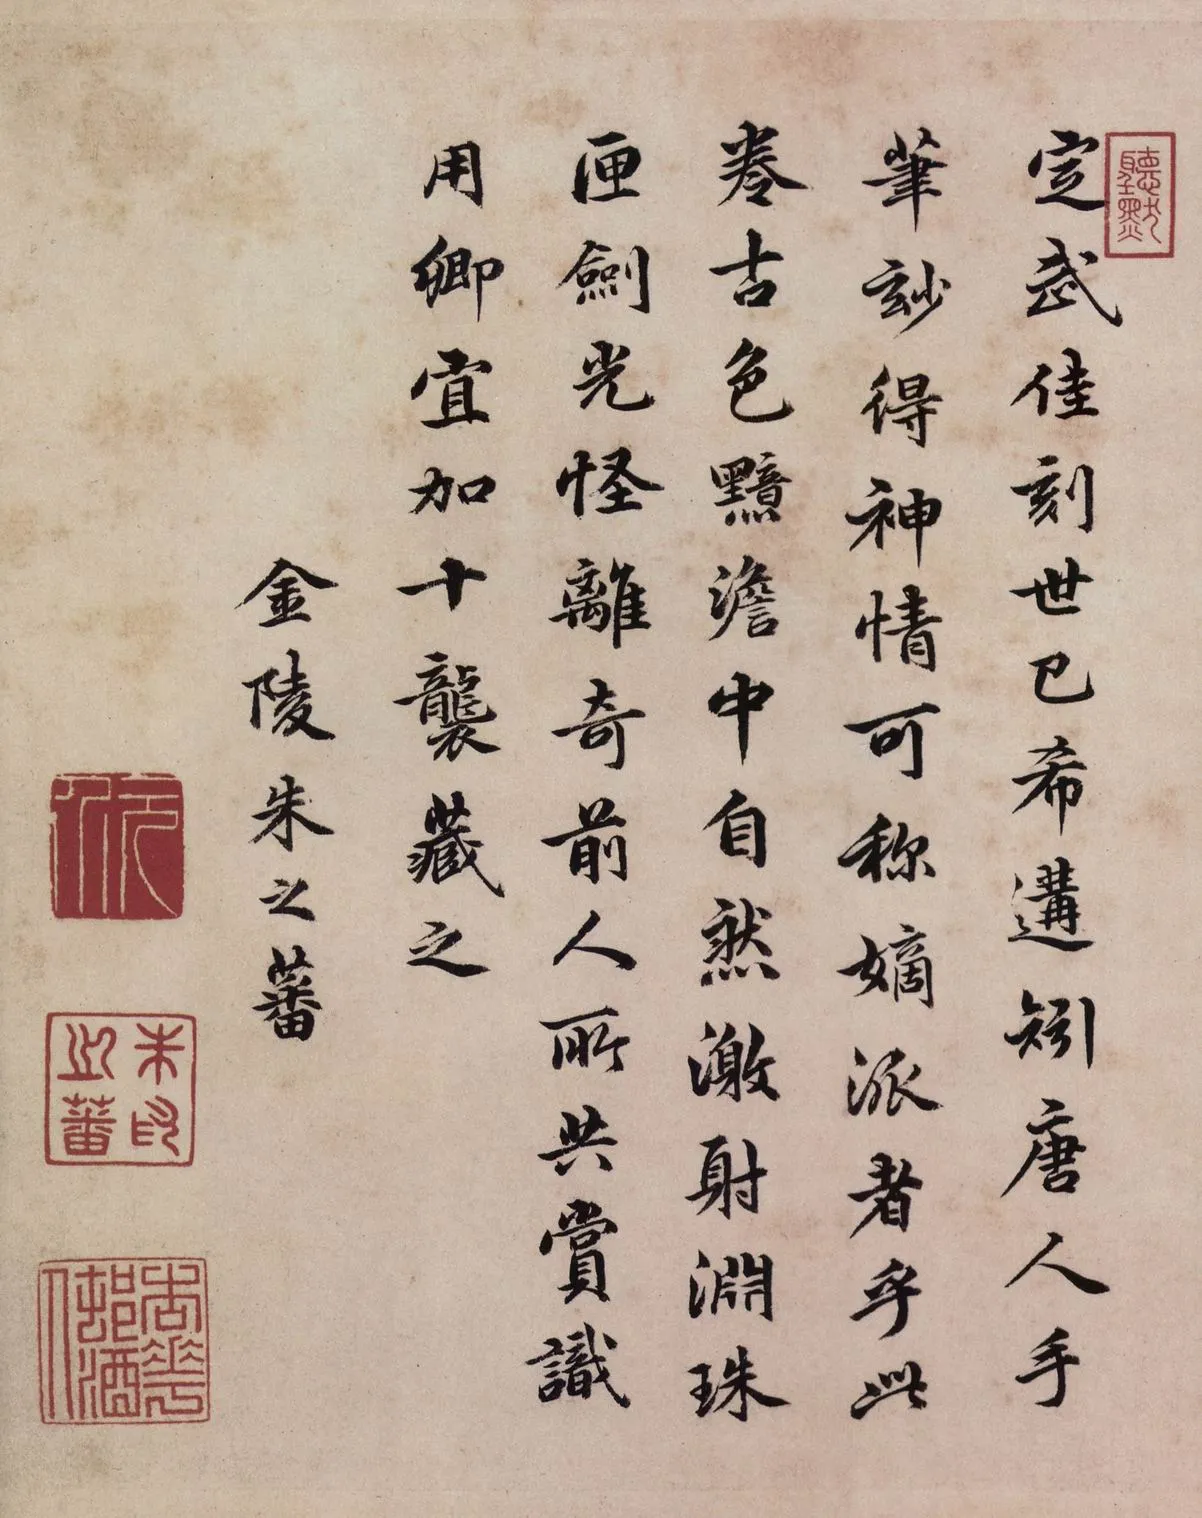 定武佳刻世已希遘矧唐人手
筆玅得神情可称嫡派者乎此
卷古色黯澹中自然激射淵珠
匣劍光怪離奇前人所共賞識
用卿宜加十襲藏之
金陵朱之蕃
聽默
朱之蕃印